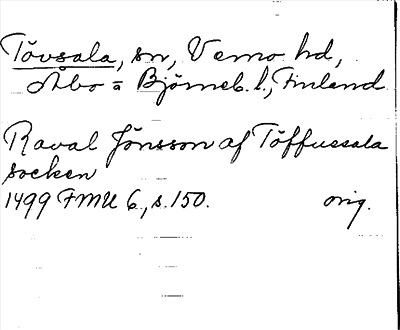 Tövsala, sn, Vemo hd,
Åbo = Björneb. l., Finland
Raval Jönsson af Töffuesala
socken
1499 FMU 6, s. 150. orig.